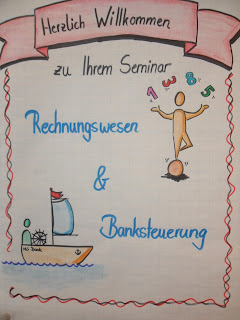 Herzlich Willkommen
zu Ihrem Seminar
1 3 8 5
Rechnungswesen
&
Banksteuerung